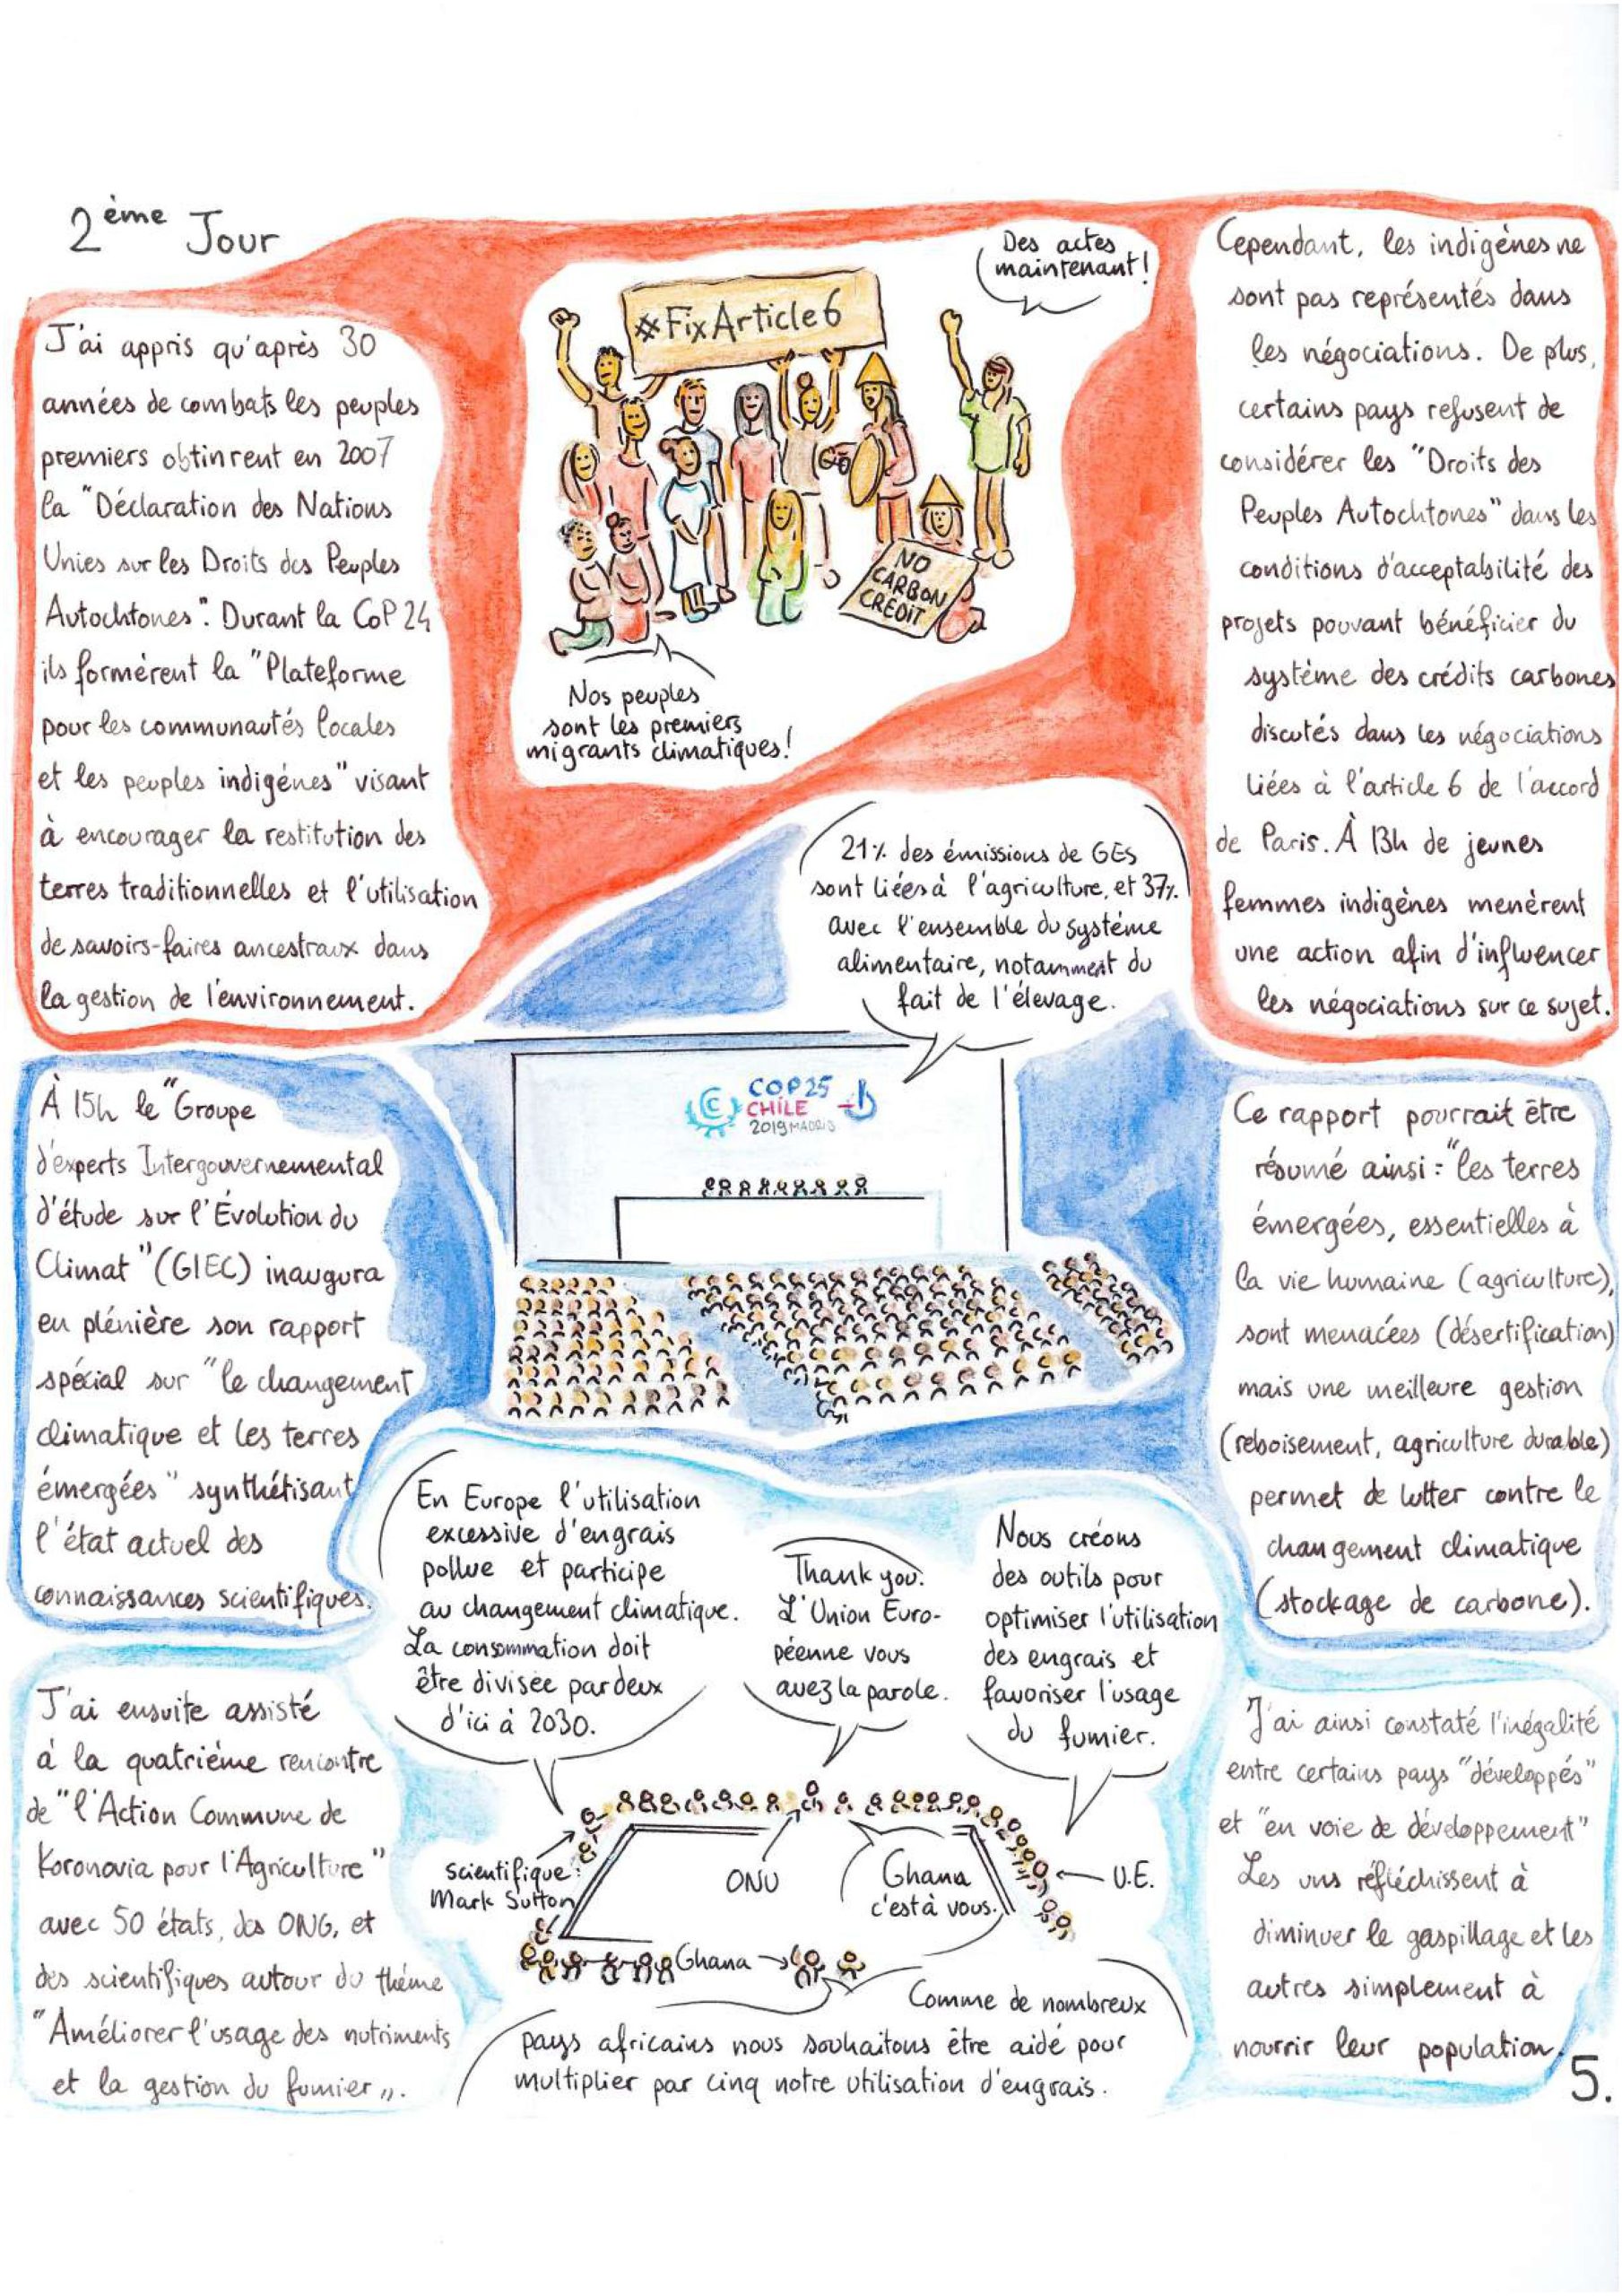 2ème Jour
J'ai appris qu'après 30
années de combats les peuples
premiers obtinrent en 2007
la "Déclaration des Nations
Unies sur les Droits des Peuples
Autochtones". Durant la CoP 24
ils formèrent la "Plateforme
pour les communautés locales
et les peuples indigènes" visant
à encourager la restitution des
terres traditionnelles et l'utilisation
de savoirs-faires ancestraux dans
la gestion de l'environnement.
#FixArticle6
Des actes
maintenant!
NO
CARBON
CREDIT
Nos peuples
sont les premiers
migrants climatiques!
Cependant, les indigènes ne
sont pas représentés dans
les négociations. De plus,
certains pays refusent de
considérer les "Droits des
Peuples Autochtones" dans les
conditions d'acceptabilité des
projets pouvant bénéficier du
système des crédits carbones
discutés dans les négociations
liées à l'article 6 de l'accord
de Paris. À 13h de jeunes
femmes indigènes menèrent
une action afin d'influencer
les négociations sur ce sujet.
À 15h le "Groupe
d'experts Intergouvernemental
d'étude sur l'Évolution du
Climat" (GIEC) inaugura
en plénière son rapport
spécial sur "le changement
climatique et les terres
émergées" synthétisant
l'état actuel des
connaissances scientifiques.
21% des émissions de GES
sont liées à l'agriculture, et 37%
avec l'ensemble du système
alimentaire, notamment du
fait de l'élevage.
COP25
CHILE
2019 MADRID
Ce rapport pourrait être
résumé ainsi : "les terres
émergées, essentielles à
la vie humaine (agriculture),
sont menacées (désertification)
mais une meilleure gestion
(reboisement, agriculture durable)
permet de lutter contre le
changement climatique
(stockage de carbone).
J'ai ensuite assisté
à la quatrième rencontre
de "l'Action Commune de
Koronovia pour l'Agriculture"
avec 50 états, des ONG, et
des scientifiques autour du thème
"Améliorer l'usage des nutriments
et la gestion du fumier".
En Europe l'utilisation
excessive d'engrais
pollue et participe
au changement climatique.
La consommation doit
être divisée par deux
d'ici à 2030.
Thank you.
L'Union Euro-
péenne vous
avez la parole.
Nous créons
des outils pour
optimiser l'utilisation
des engrais et
favoriser l'usage
du fumier.
scientifique:
Mark Sutton
ONU
Ghana
c'est à vous.
U.E.
Ghana
Comme de nombreux
pays africains nous souhaitons être aidé pour
multiplier par cinq notre utilisation d'engrais.
J'ai ainsi constaté l'inégalité
entre certains pays "développés"
et "en voie de développement"
Les uns réfléchissent à
diminuer le gaspillage et les
autres simplement à
nourrir leur population.
5.